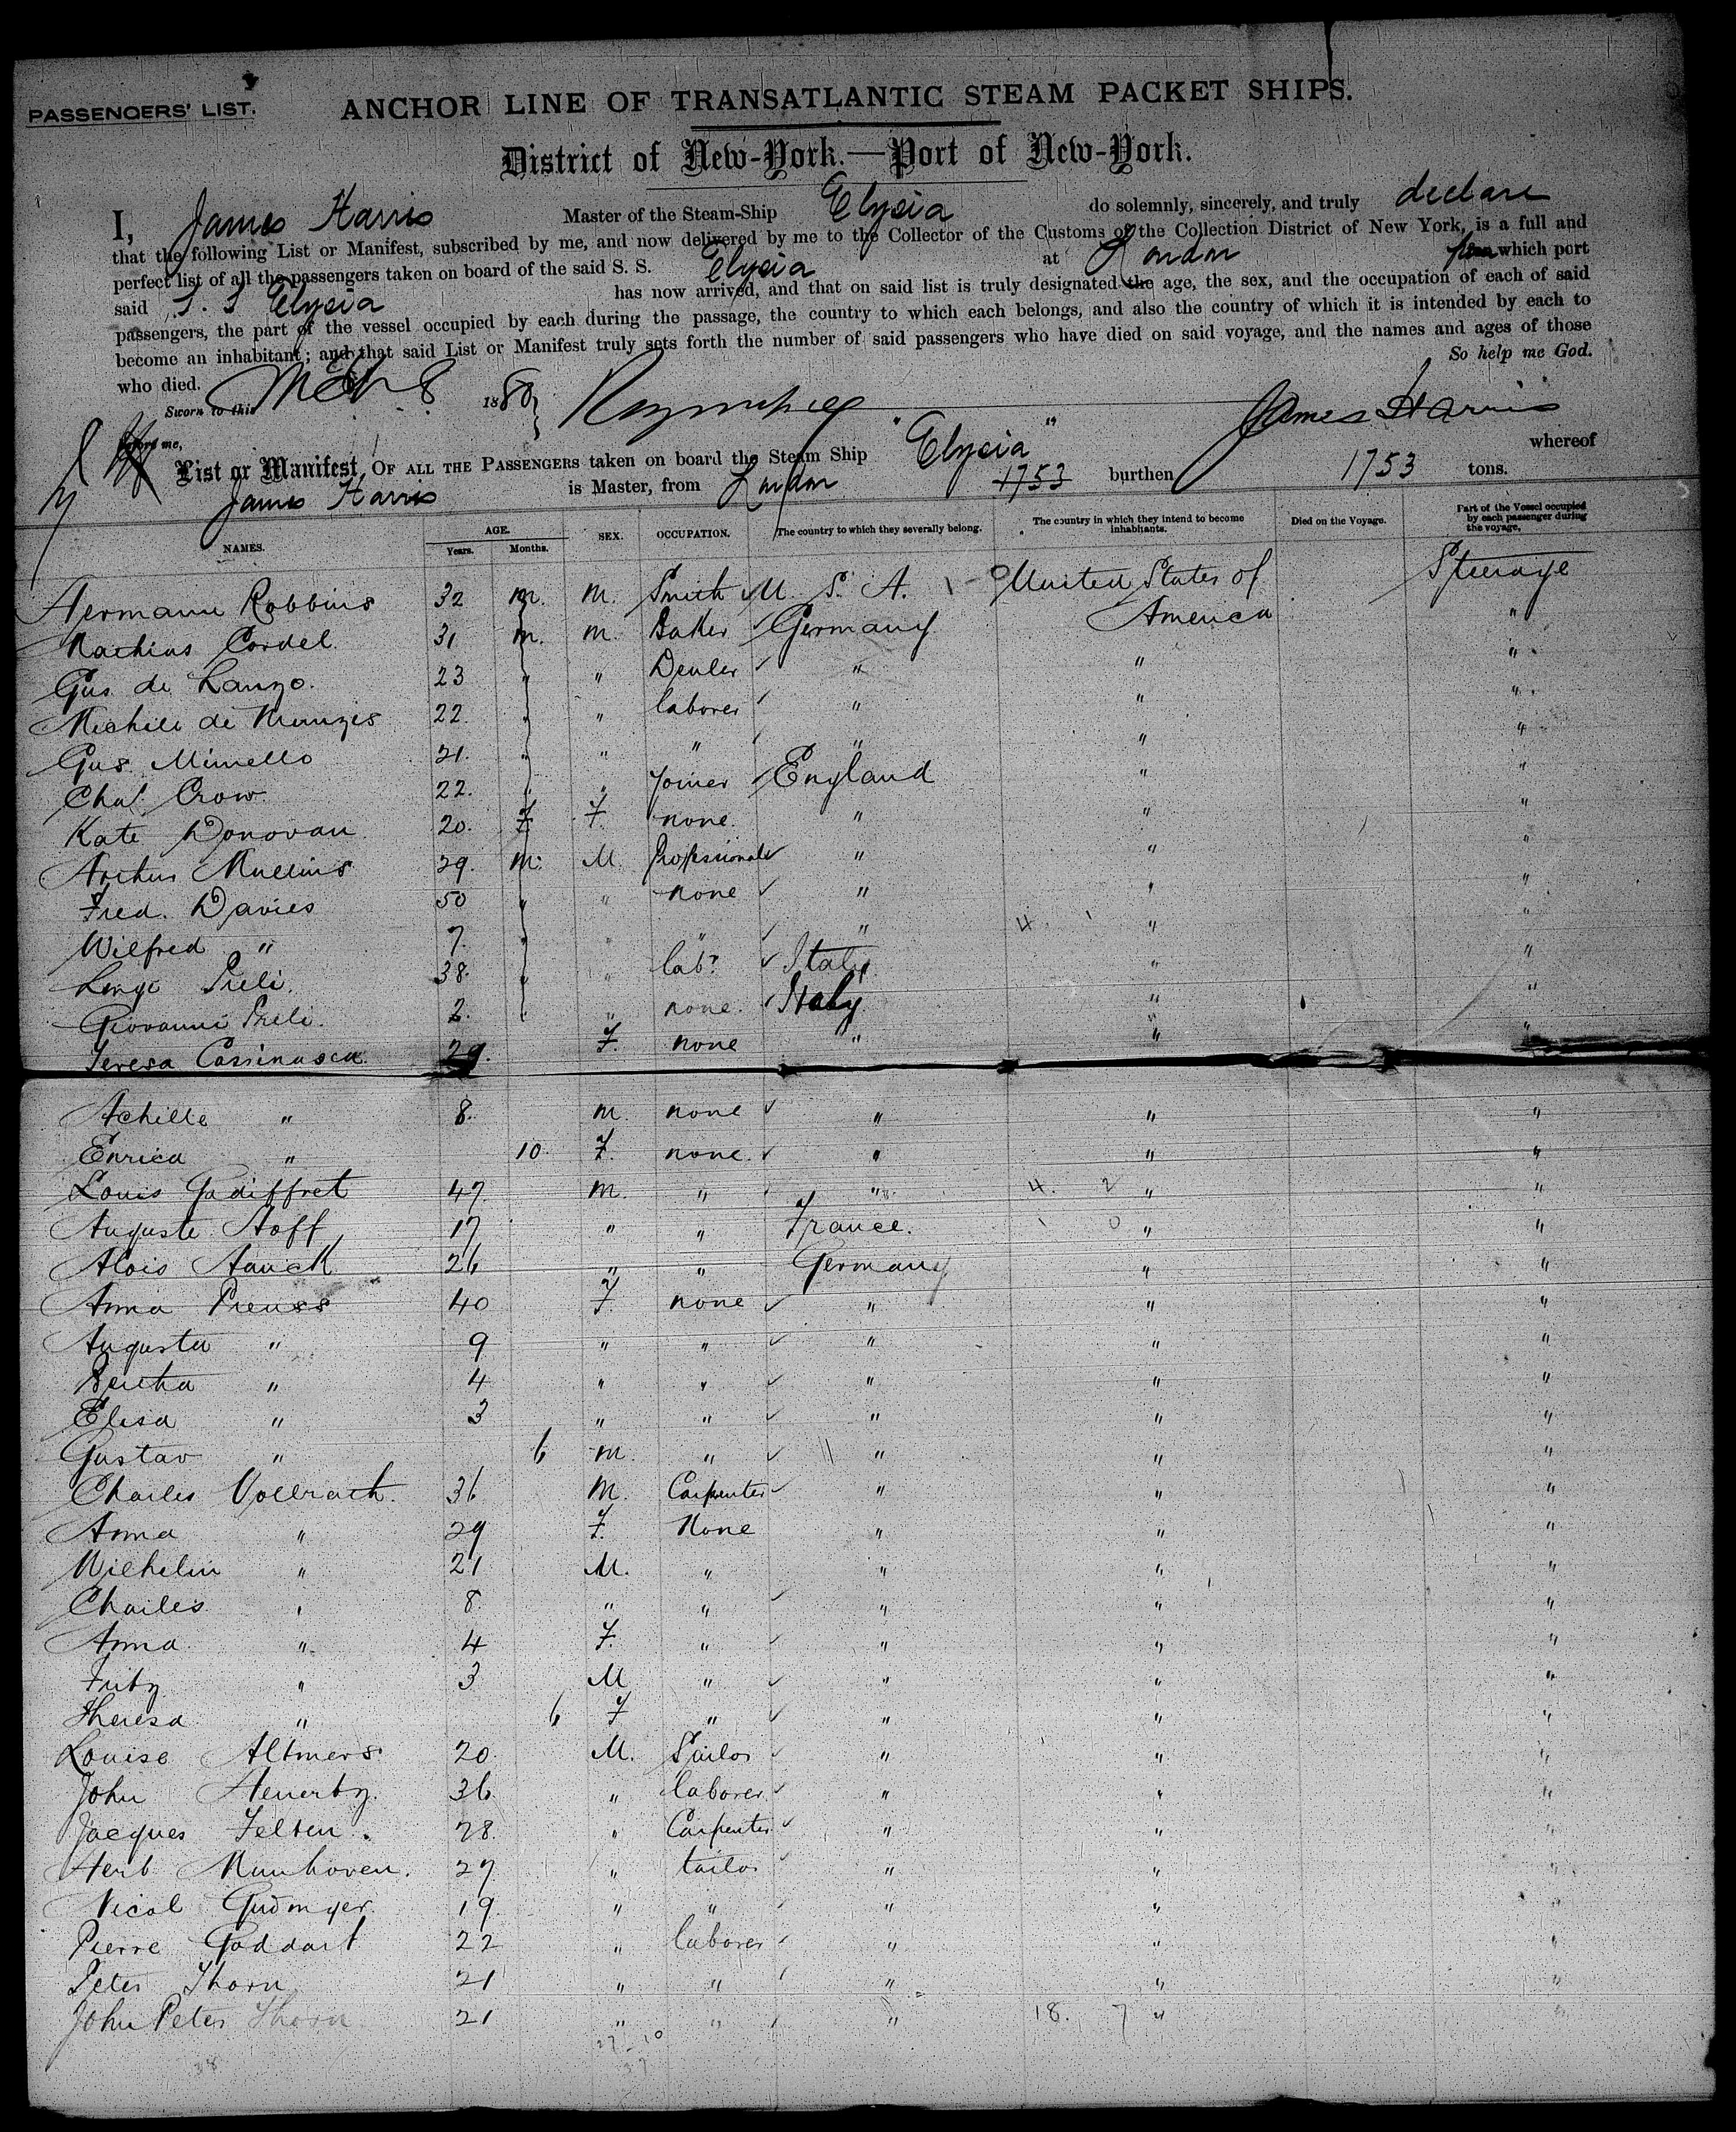 PASSENGERS' LIST. ANCHOR LINE OF TRANSATLANTIC STEAM PACKET SHIPS.
District of New-York.—Port of New-York.
I, James Harris Master of the Steam-Ship Elysia do solemnly, sincerely, and truly declare
that the following List or Manifest, subscribed by me, and now delivered by me to the Collector of the Customs of the Collection District of New York, is a full and
perfect list of all the passengers taken on board of the said S. S. Elysia at London from which port
said S. S Elysia has now arrived, and that on said list is truly designated the age, the sex, and the occupation of each of said
passengers, the part of the vessel occupied by each during the passage, the country to which each belongs, and also the country of which it is intended by each to
become an inhabitant; and that said List or Manifest truly sets forth the number of said passengers who have died on said voyage, and the names and ages of those
who died. So help me God.
Sworn to this 8 1880 James Harris
before me,
List or Manifest, OF ALL THE PASSENGERS taken on board the Steam Ship "Elysia" whereof
James Harris is Master, from London 1753 burthen 1753 tons.
NAMES. AGE. Years. Months. SEX. OCCUPATION. The country to which they severally belong. The country in which they intend to become inhabitants. Died on the Voyage. Part of the Vessel occupied by each passenger during the voyage.
Hermann Robbins 32 m. m. Smith U. S. A. United States of Steerage
Mathias Cordel 31 m. m. Baker Germany America "
Gus de Lanzo. 23 " " Dealer " " "
Michele de 22. " " laborer " " "
Gus Minello 21. " " " " " "
Chas Crow 22. " " Joiner England " "
Kate Donovan 20. F F. none. " " "
Arthur Mullins 29. m. M. Professional " " "
Fred. Davies 50 " " none " " "
Wilfred " 7. " " " " 4. 1 " "
Preli. 38. " " labr Italy " "
Giovanni Preli. 2. " none. Italy " "
Teresa Cassinasca. 29. F. none " " "
Achille " 8. m. none " " "
Enrica " 10. F. none. " " "
Louis Gadiffret 47 m. " " 4. 2 " "
Auguste Hoff 17 " " France. " "
Alois Hauck 26 " " Germany " "
Anna Preuss 40 F. none " " "
Augusta " 9 " " " " "
Bertha " 4 " " " " "
Elisa " 3 " " " " "
Gustav " 6 m. " " " "
Charles Vollrath. 36 M. Carpenter " " "
Anna " 29 F. None " " "
Wilhelm " 21 M. " " " "
Charles " 8 " " " " "
Anna " 4 F. " " " "
Fritz " 3 M " " " "
Theresa " 6 F " " " "
Louise Altmers 20 M. Sailor " " "
John 36 " laborer " " "
Jacques Felten. 28. " Carpenter " " "
Herb Munhoven. 27 " tailor " " "
Nicol 19. " " " " "
Pierre Goddart 22 " laborer " " "
Peter Thorn 21 " " " " "
John Peter Thorn 21 " " " 18. 7 " "
38 27 10
37